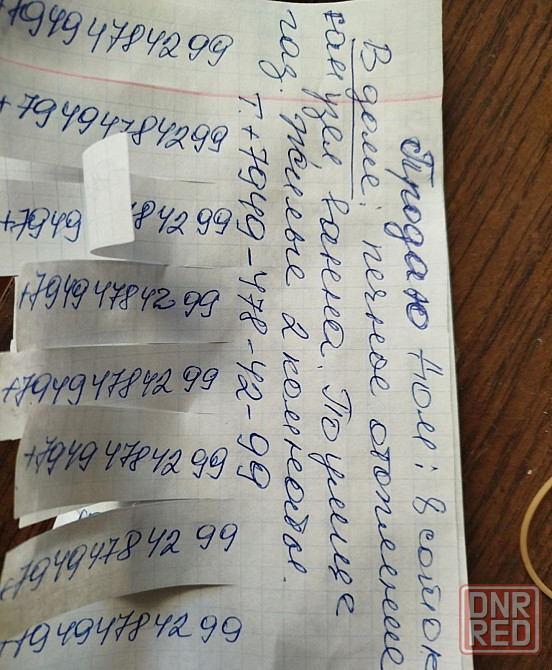 Продаю дом: 8 соток
В доме: печное отопление
сан узел ванна. По улице
газ. Жилые 2 комнаты.
т. +7949-478-42-99
+79494784299
+79494784299
+7949 84299
+79494784299
+79494784299
+79494784299
+79494784299
+79494784299
DNR
RED